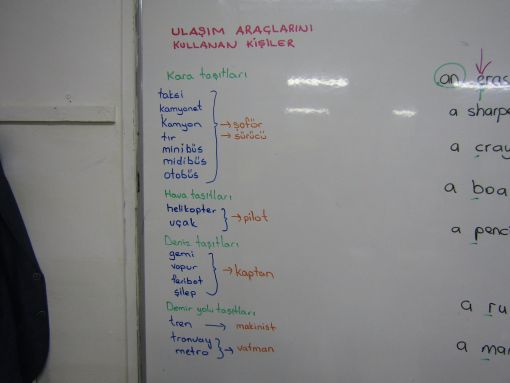 ULAŞIM ARAÇLARINI
KULLANAN KİŞİLER
Kara taşıtları
taksi
kamyonet
kamyon → şoför
tır → sürücü
minibüs
midibüs
otobüs
Hava taşıtları
helikopter
uçak → pilot
Deniz taşıtları
gemi
vapur → kaptan
feribot
şilep
Demir yolu taşıtları
tren → makinist
tramvay
metro → vatman
an eras
a sharpe
a cray
a boa
a penci
a ru
a ma